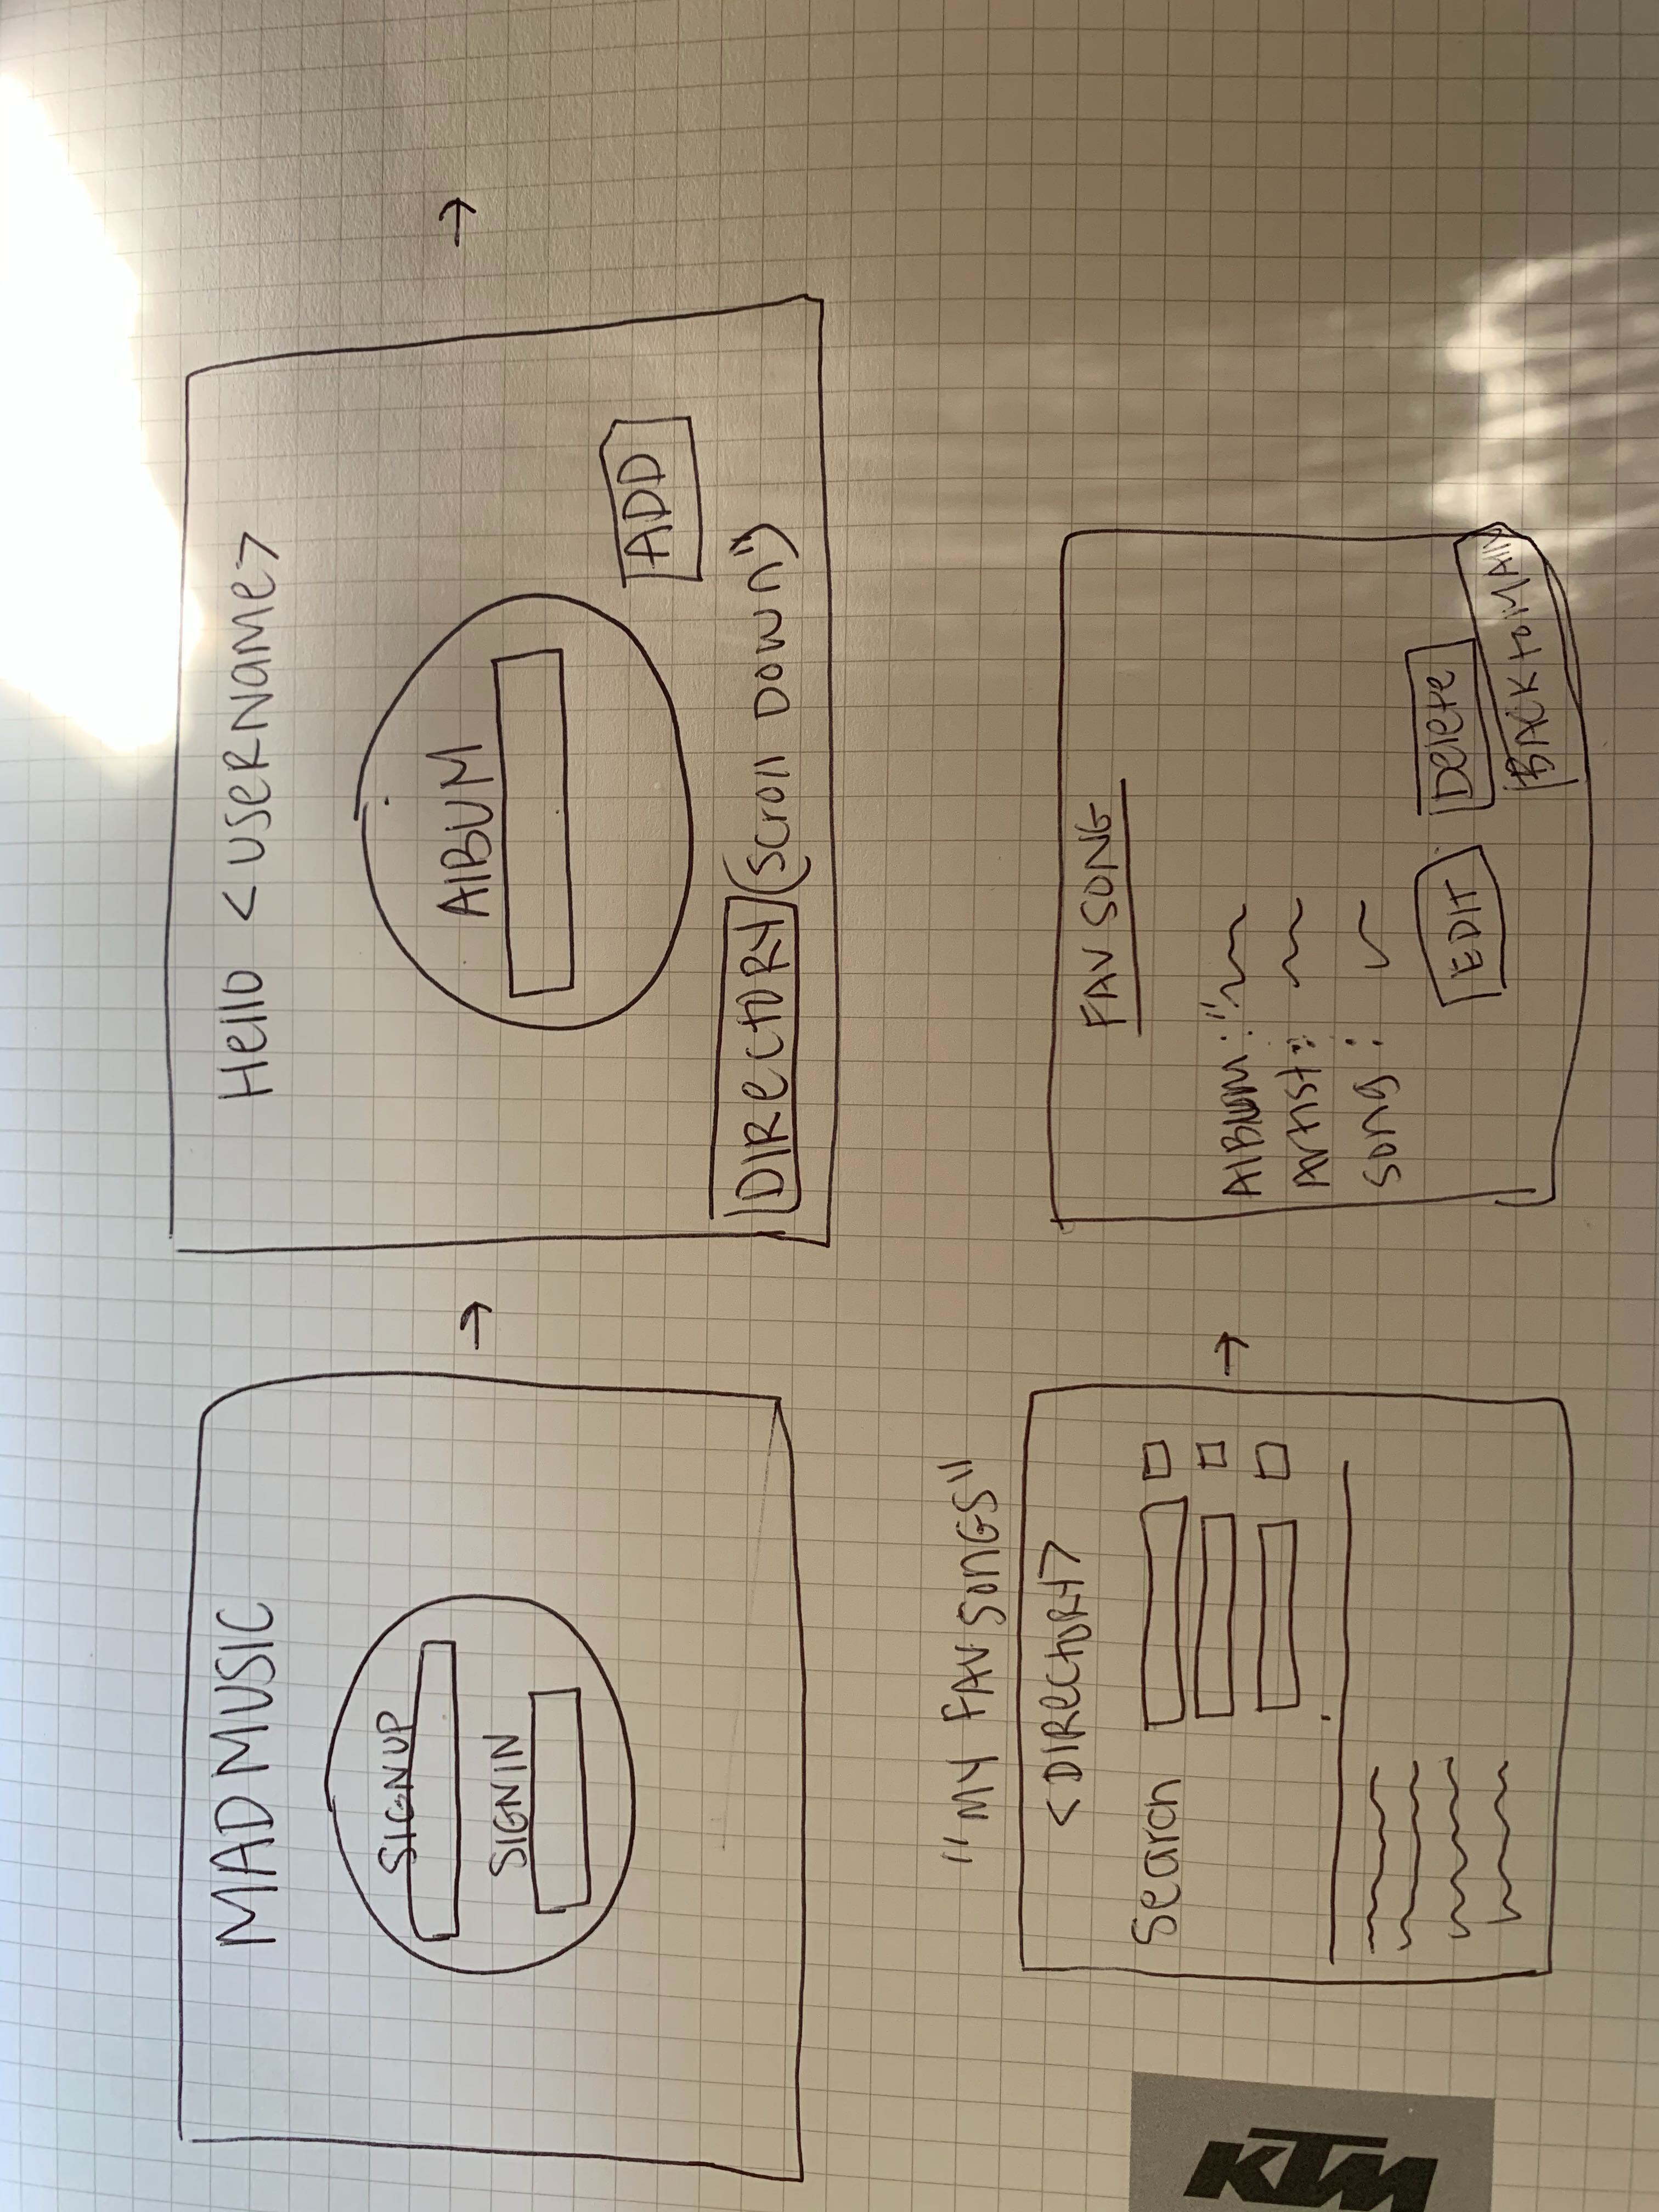 MAD MUSIC
SIGNUP
SIGNIN
→
Hello <username>
AlBUM
ADD
DIRectORY (scroll Down")
→
"MY FAV SONGS"
<DIRectORY>
Search
→
FAV SONG
AlBum:"
Artist:
Song:
EDIT
Delete
BACK to MAIN
KTM